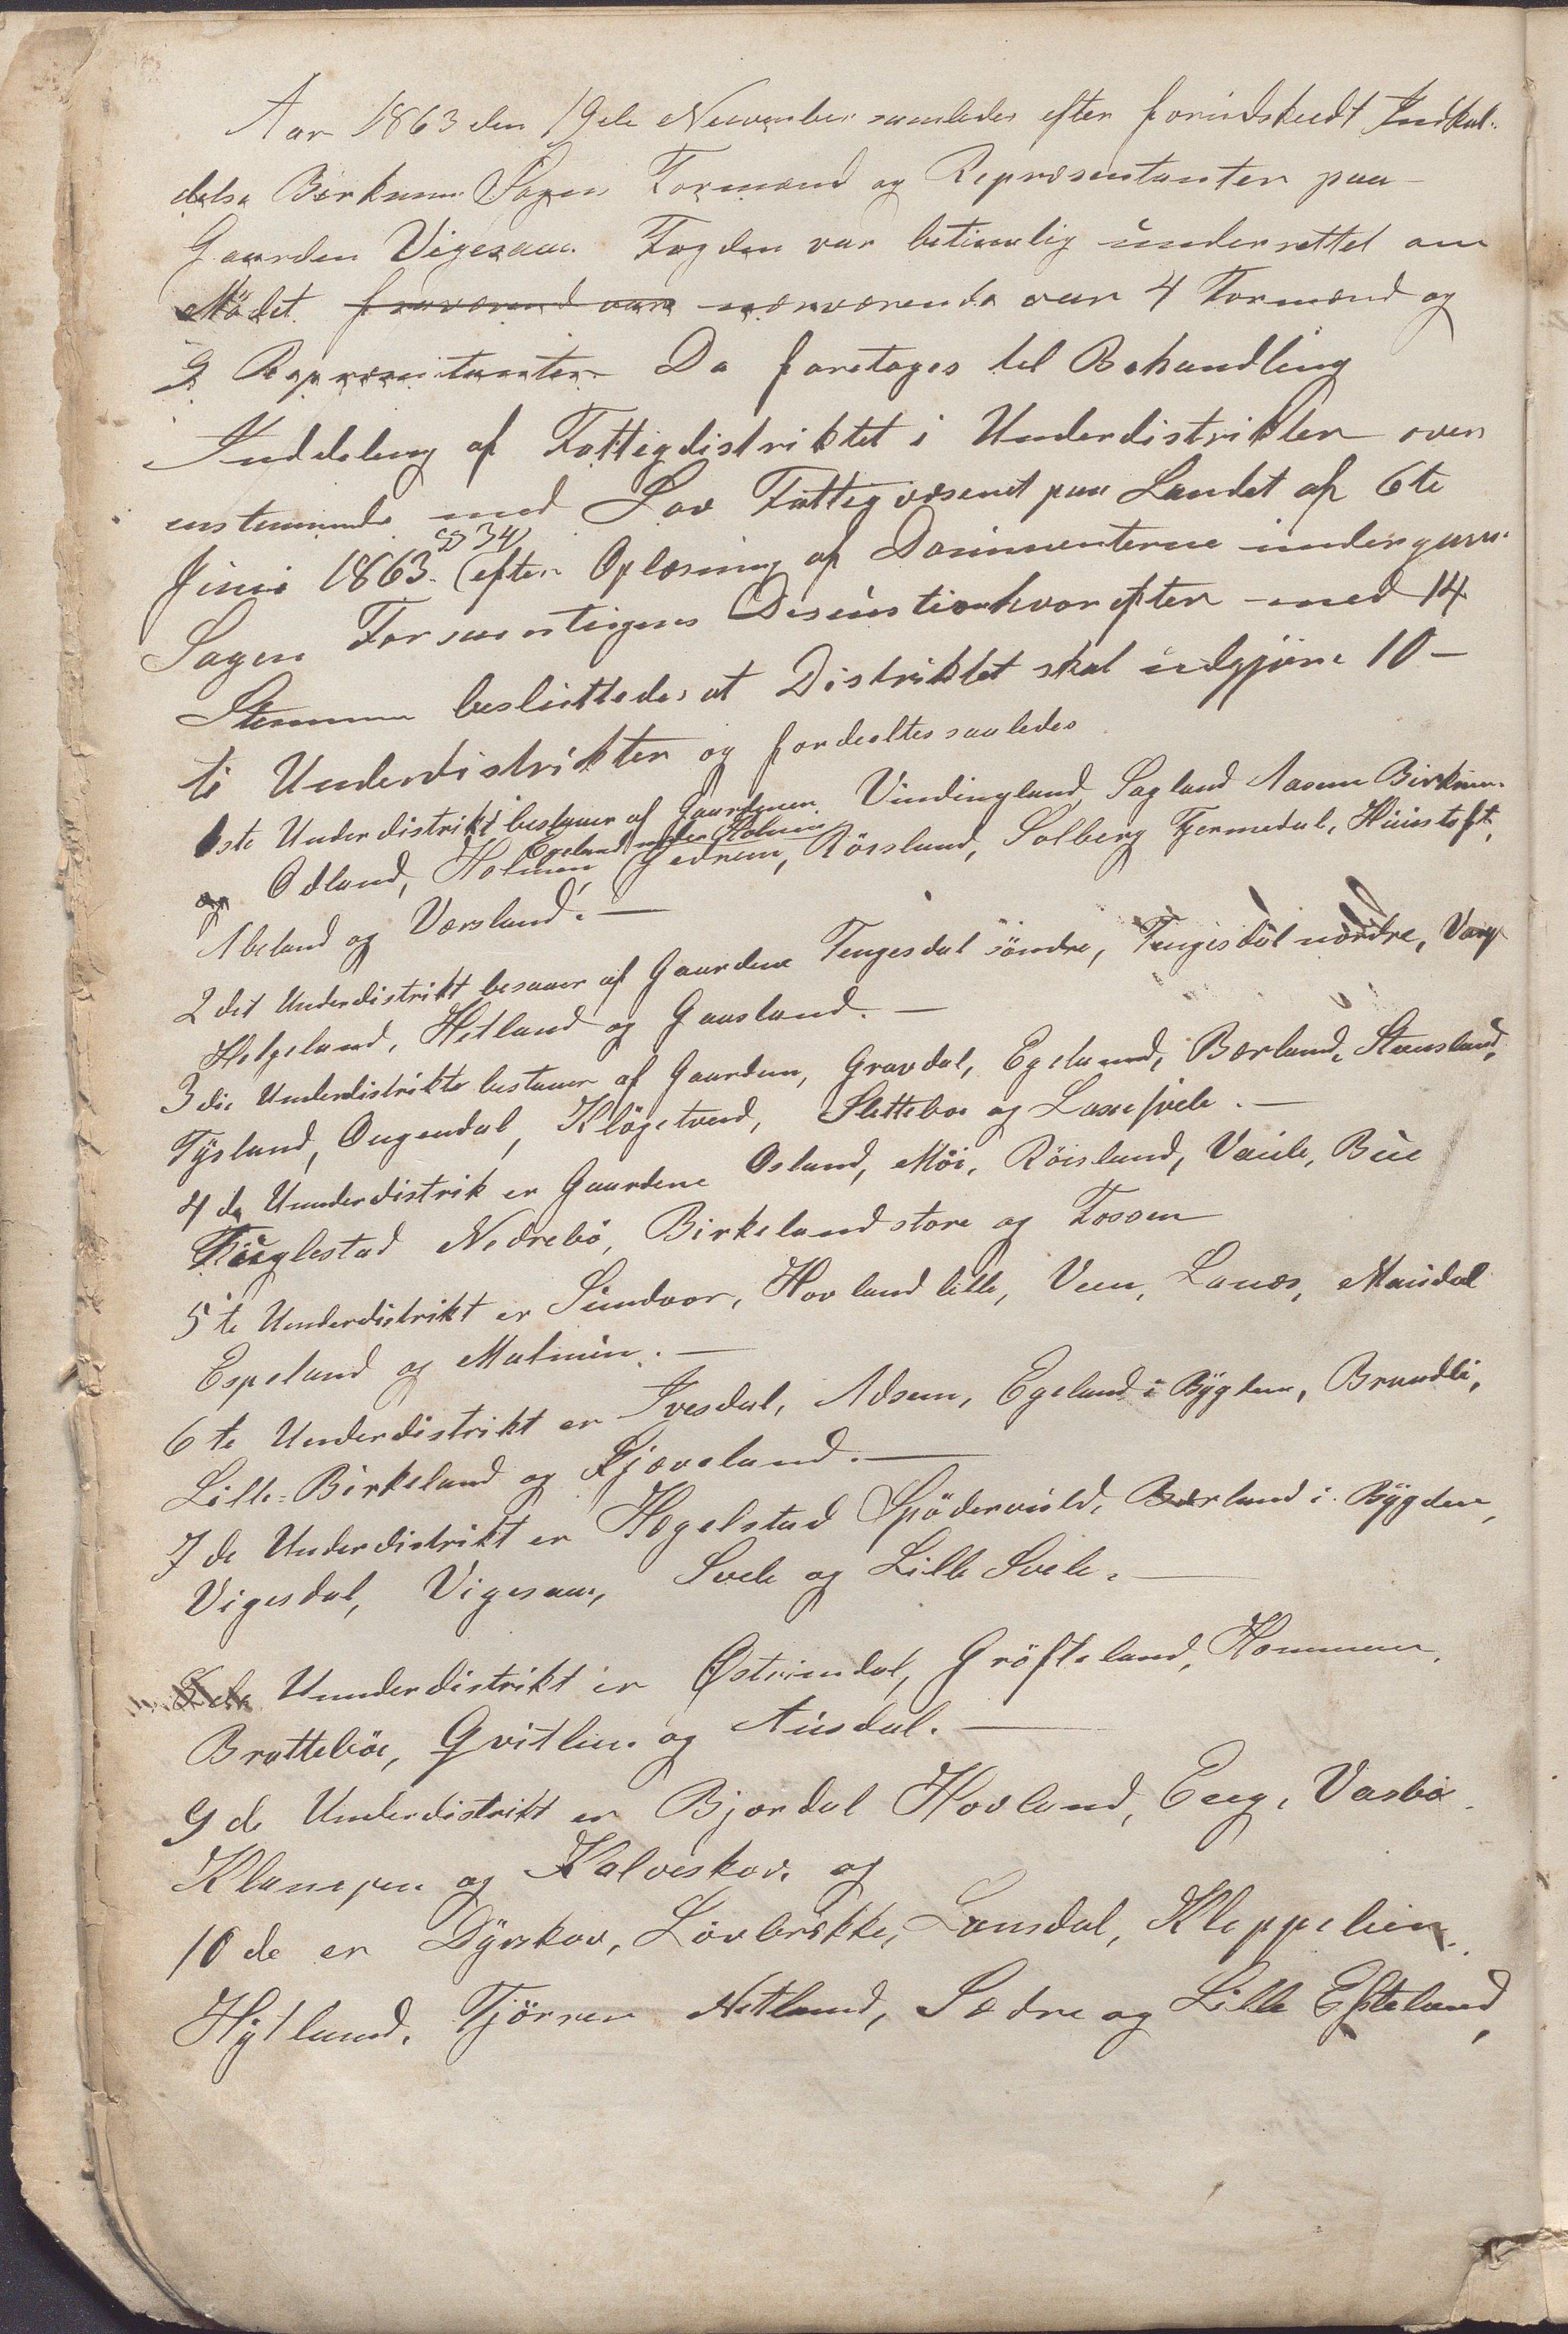 Aar 1863 den 19de November samledes efter forudskedt Indkal-
delse Birkrem Sogns Formænd og Repræsentanter paa
Gaarden Vigesaa. Fogden var betimelig underrettet om
Mödet fraværend var nærværende var 4 Formænd og
9 Repræsentanter Da foretoges til Behandling
Inddeling af Fattigdistriktet i Underdistrikter over
enstemmende med Lov Fattigvæsenet paa Landet af 6te
Juni 1863 § 34 (efter Oplæsning af Documenterne
Sagen Discustion hvorefter med 14
Stemmer besluttedes at Distriktet skal udgjöre 10 -
ti Underdistrikter og fordeeltes saaledes
1ste Underdistrikt bestaaer af Gaardenen Vindingland, Sagland Aasen Birkrem
Egeland under Holmen
og Ødland, Holmen, Gedrem, Röisland, Solberg Fjermedal, Huustoft,
Abeland og Værsland. —
2det Underdistrikt besaaer af Gaardene Tengesdal söndre, Tengesdal nordre,
Helgeland, Hetland og Gaasland. —
3die Underdistrikte bestaaer af Gaarden, Gravdal, Egeland, Bærland, Steensland,
Tysland, Ougendal, Klögetved, Slettebø og Lassesvele. —
4de Uunderdistrik er Gaardene Osland, Möi, Röisland, Vaule, Bue
Fuglestad Nedrebö, Birkeland store og Fossen
5te Underdistrikt er Sundvor, Hovland lille, Veen, Lanes, Maudal
Espeland og Malmin. —
6te Underdistrikt er Ivesdal, Adsem, Egeland i Bygden, Brandli,
Lille-Birkeland og Gjæveland. —
7de Underdistrikt er Hegelstad Spödervold, Bærland i Bygden,
Vigesdal, Vigesaa, Svele og Lille Svele. —
8de Uunderdistrikt er Østrimdal, Gröfteland, Hommen,
Brattebö, Qvitlin og Ausdal. —
9de Underdistrikt er Bjordal Hovland, Eeg, Vasbö
Klungen og Kalveskov, og
10de er Dyrskov, Lövbrække, Lonsdal, Kleppelien.
Hytland, Tjörren Netland, Sædre og Lille Efteland,